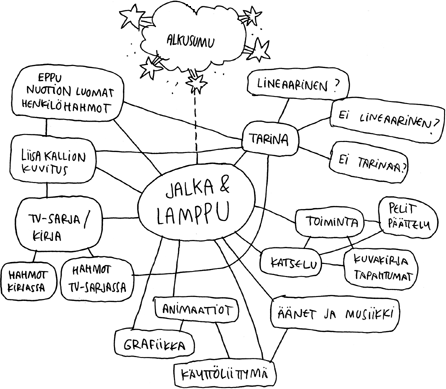 ALKUSUMU
EPPU
NUOTION LUOMAT
HENKILÖHAHMOT
LINEAARINEN?
EI LINEAARINEN?
TARINA
EI TARINAA?
LIISA KALLION
KUVITUS
JALKA &
LAMPPU
TV-SARJA/
KIRJA
TOIMINTA
PELIT
PÄÄTTELY
HAHMOT
KIRJASSA
HAHMOT
TV-SARJASSA
KATSELU
KUVAKIRJA
TAPAHTUMAT
ANIMAATIOT
ÄÄNET JA MUSIIKKI
GRAFIIKKA
KÄYTTÖLIITTYMÄ